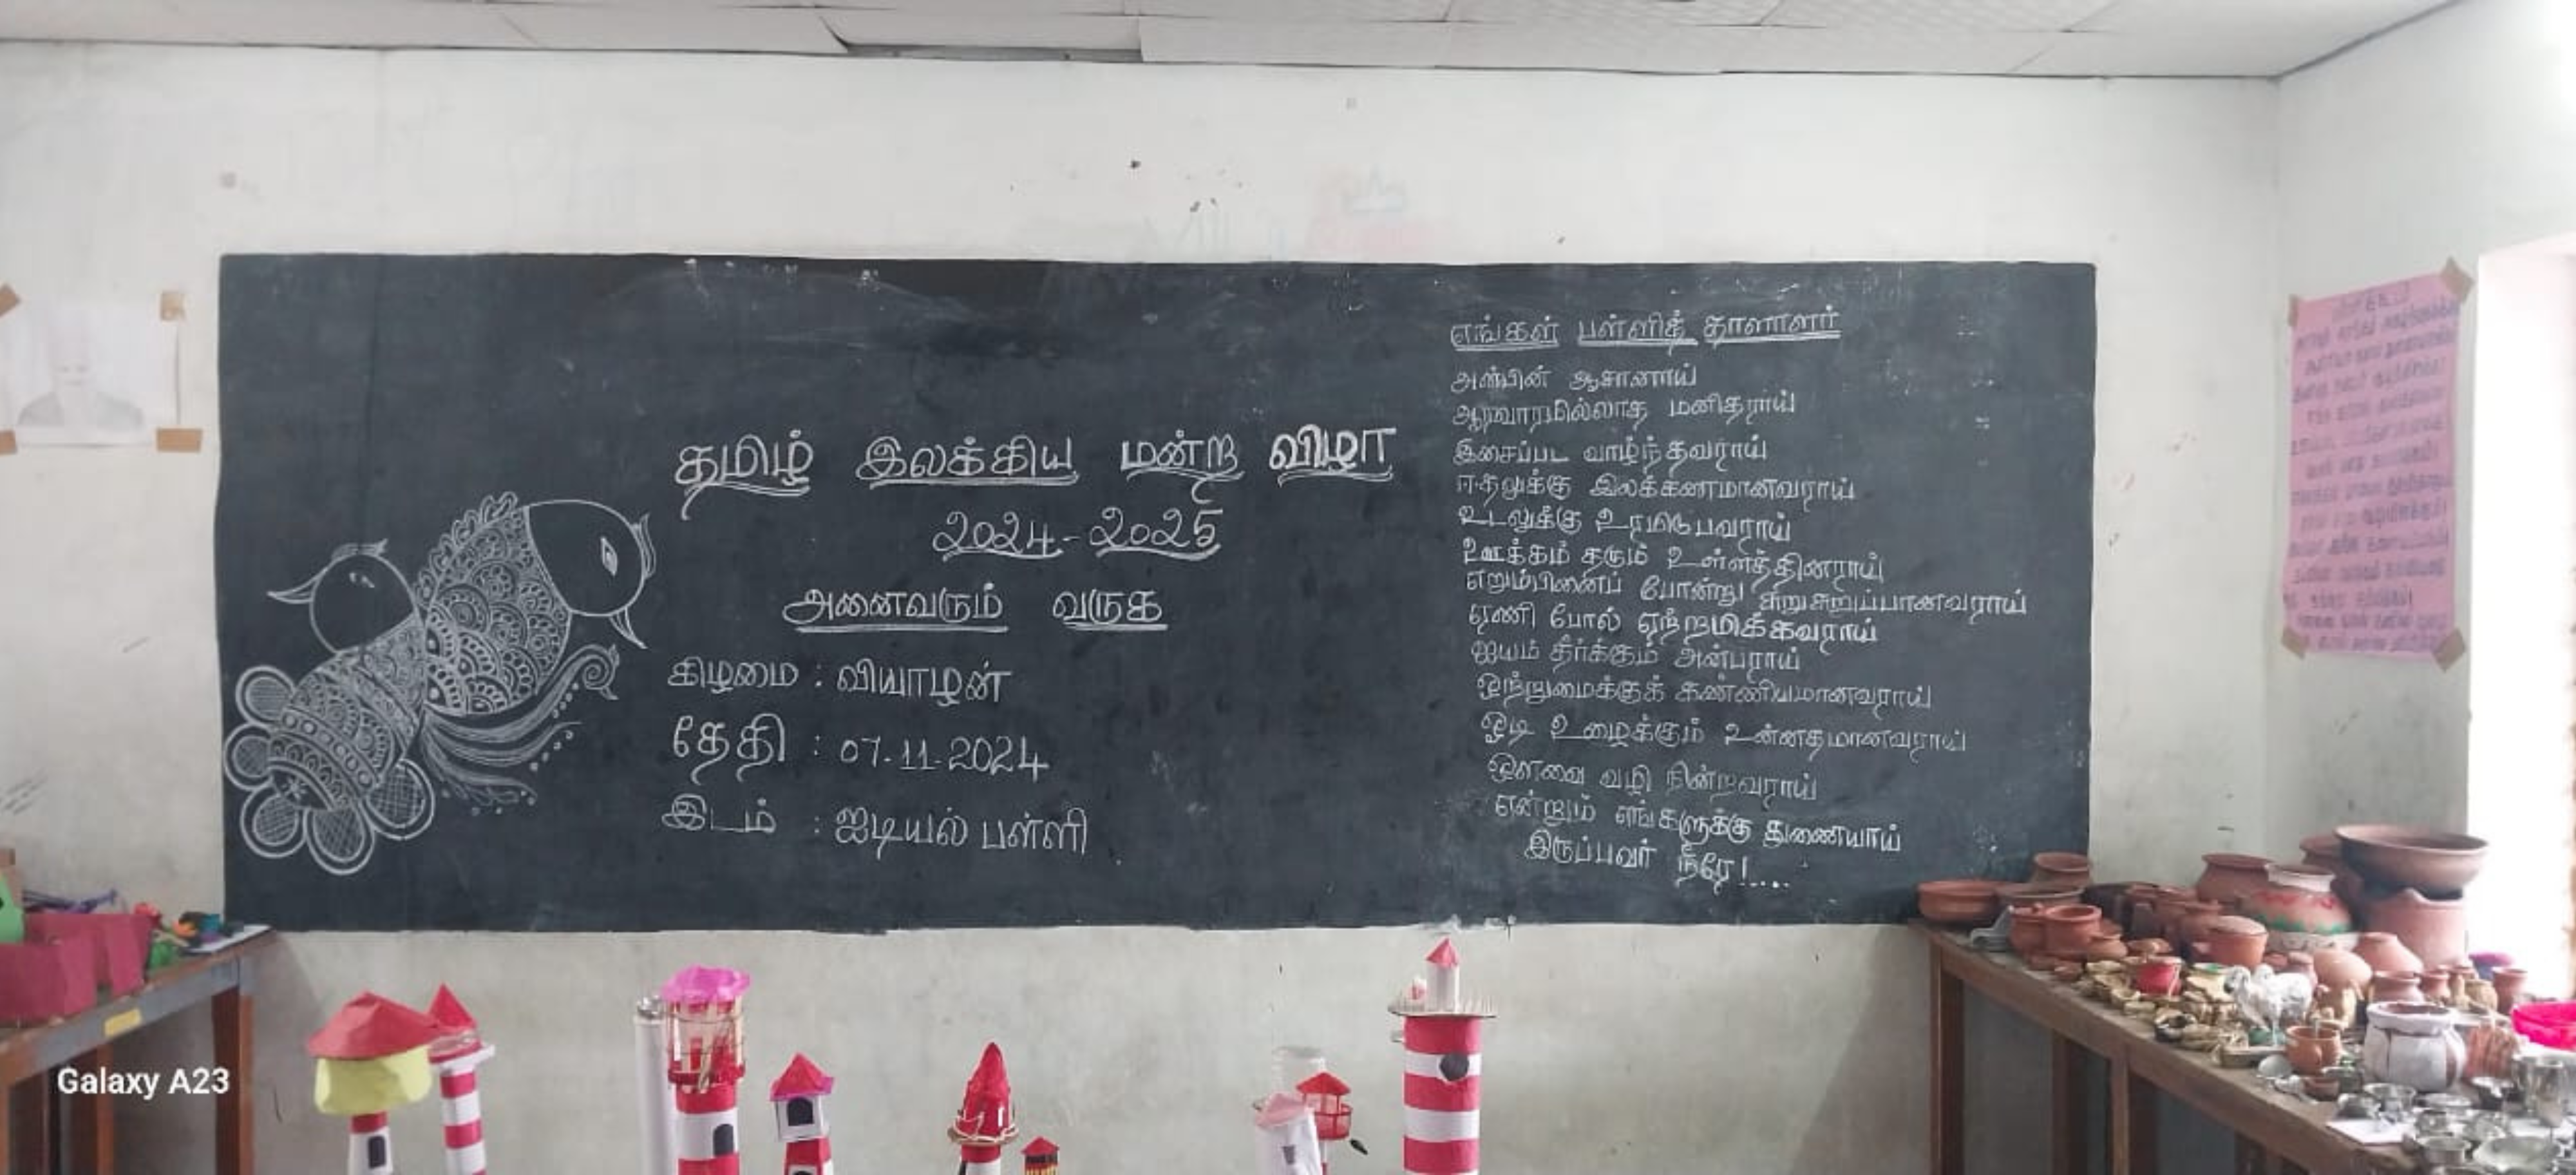 தமிழ் இலக்கிய மன்ற விழா
2024-2025
அனைவரும் வருக
கிழமை : வியாழன்
தேதி : 07.11.2024
இடம் : ஐடியல் பள்ளி
எங்கள் பள்ளித் தாளாளர்
அன்பின் ஆசானாய்
ஆரவாரமில்லாத மனிதராய்
இசைப்பட வாழ்ந்தவராய்
ஈதலுக்கு இலக்கணமானவராய்
உடலுக்கு உரமிடுபவராய்
ஊக்கம் தரும் உள்ளத்தினராய்
எறும்பினைப் போன்று சுறுசுறுப்பானவராய்
ஏணி போல் ஏற்றமிக்கவராய்
ஐயம் தீர்க்கும் அன்பராய்
ஒற்றுமைக்குக் கண்ணியமானவராய்
ஓடி உழைக்கும் உன்னதமானவராய்
ஔவை வழி நின்றவராய்
என்றும் எங்களுக்கு துணையாய்
இருப்பவர் நீரே!....
Galaxy A23